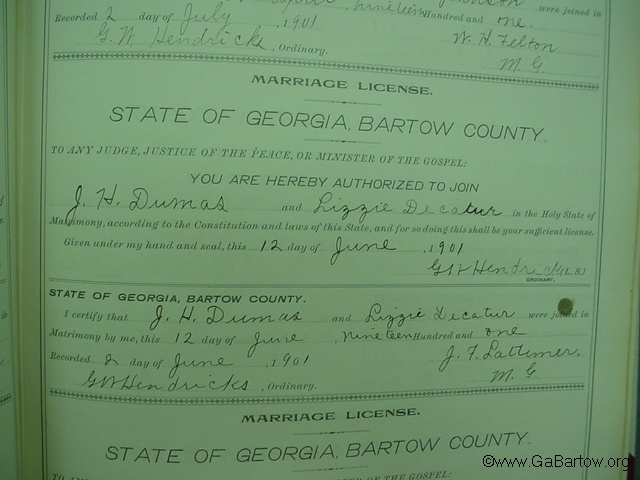 nineteen Hundred and one were joined in
Recorded 2 day of July , 1901
W. H. Felton
G. W. Hendricks , Ordinary.
M. G.
MARRIAGE LICENSE.
STATE OF GEORGIA, BARTOW COUNTY.
TO ANY JUDGE, JUSTICE OF THE PEACE, OR MINISTER OF THE GOSPEL:
YOU ARE HEREBY AUTHORIZED TO JOIN
J. H. Dumas and Lizzie Decatur in the Holy State of
Matrimony, according to the Constitution and laws of this State, and for so doing this shall be your sufficient license.
Given under my hand and seal, this 12 day of June , 1901
G W Hendricks (L. S.)
ORDINARY.
STATE OF GEORGIA, BARTOW COUNTY.
I certify that J. H. Dumas and Lizzie Decatur were joined in
Matrimony by me, this 12 day of June , nineteen Hundred and one
Recorded 2 day of June , 1901
J. F. Lattimer.
G W Hendricks , Ordinary.
M. G.
MARRIAGE LICENSE.
STATE OF GEORGIA, BARTOW COUNTY.
OF THE GOSPEL:
©www.GaBartow.org